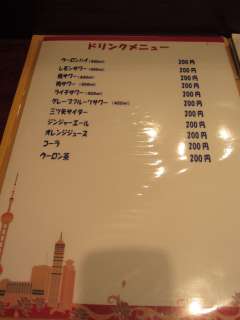 ドリンクメニュー
ウーロンハイ(400ml) 200円
レモンサワー(400ml) 200円
サワー(400ml) 200円
サワー(400ml) 200円
ライチサワー(400ml) 200円
グレープフルーツサワー(400ml) 200円
三ツ矢サイダー 200円
ジンジャーエール 200円
オレンジジュース 200円
コーラ 200円
ウーロン茶 200円